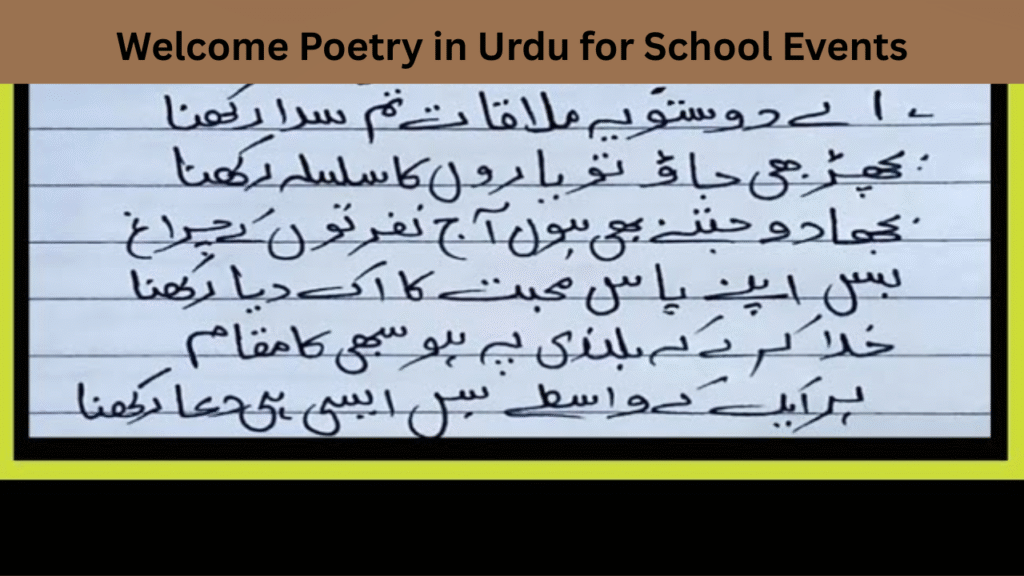 Welcome Poetry in Urdu for School Events
۱ اے دوستو یہ ملاقات تم سدا رکھنا
بچھڑ بھی جاؤ تو یاروں کا سلسلہ رکھنا
بجھا دو جتنے بھی ہوں آج نفرتوں کے چراغ
بس اپنے پاس محبت کا اک دیا رکھنا
خدا کرے کہ بلندی پہ ہو سبھی کا مقام
ہر ایک کے واسطے بس ایسی ہی دعا رکھنا